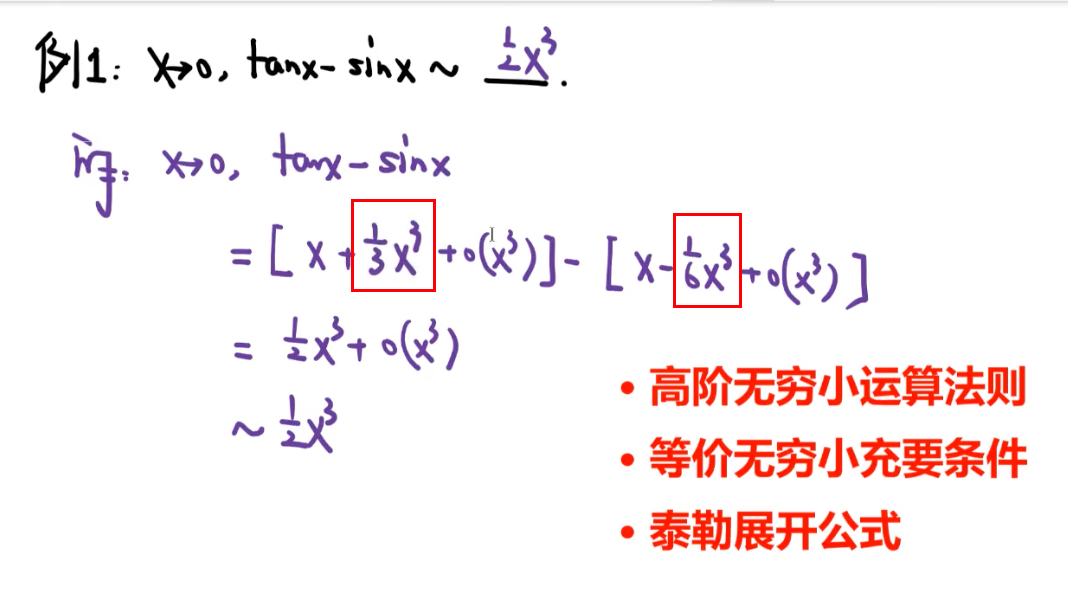 例1: x→0, tanx - sinx ~ ½x³.
x→0, tanx - sinx
= [ x + ⅓x³ + o(x³) ] - [ x - ⅙x³ + o(x³) ]
= ½x³ + o(x³)
~ ½x³
• 高阶无穷小运算法则
• 等价无穷小充要条件
• 泰勒展开公式